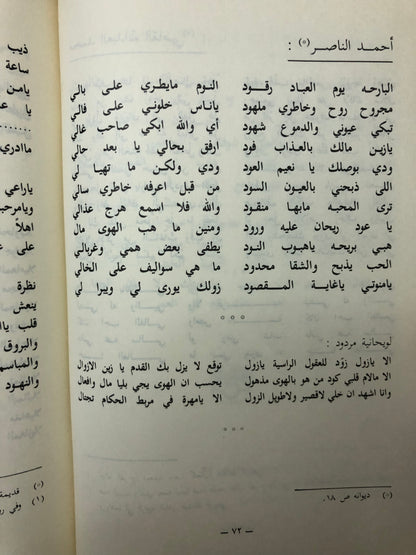 أحمد الناصر (*) :
البارحه يوم العباد رقود النوم مايطري على بالي
مجروح روح وخاطري ملهود ياناس خلوني على فالي
تبكي عيوني والدموع شهود أي والله ابكي صاحب غالي
يازين مالك بالعذاب فود ارفق بحالي يا بعد حالي
ودي بوصلك يا نعيم العود ودي ولكن ما تهيا لي
اللي ذبحني بالعيون السود من قبل اعرفه خاطري سالي
ترى المحبه مابها منقود والله فلا اسمع هرج عذالي
يا عود ريحان عليه ورود ومنين ما هب الهوى مال
هبي بريحه ياهبوب النود يطفى بعض همي وغربالي
الحب يذبح والشقا محدود ما هي سواليف على الخالي
يامنوتي ياغاية المقصود زولك يورى لي ويبرا لي
لويحانية مردود :
الا يازول زوّد للعقول الراسية يازول توقع لا يزل بك القدم يا زين الازوال
الا مالام قلبي كود من هو بالهوى مذهول يحسب ان الهوى يجي بليا مال وافعال
وانا اشهد ان خلي لاقصير ولاطويل الزول الا يامهرة في مربط الحكام تجتال
(*) ديوانه ص ١٨.
— ٧٢ —
ذيب
ساعة
يامن
يا
ماادري
ياراعي
ويامرحبا
اهلاً
على
نظرة
ينعش
قلب
والبروق
والمباسم
والنهود
(*) قديمة
(١) وفي